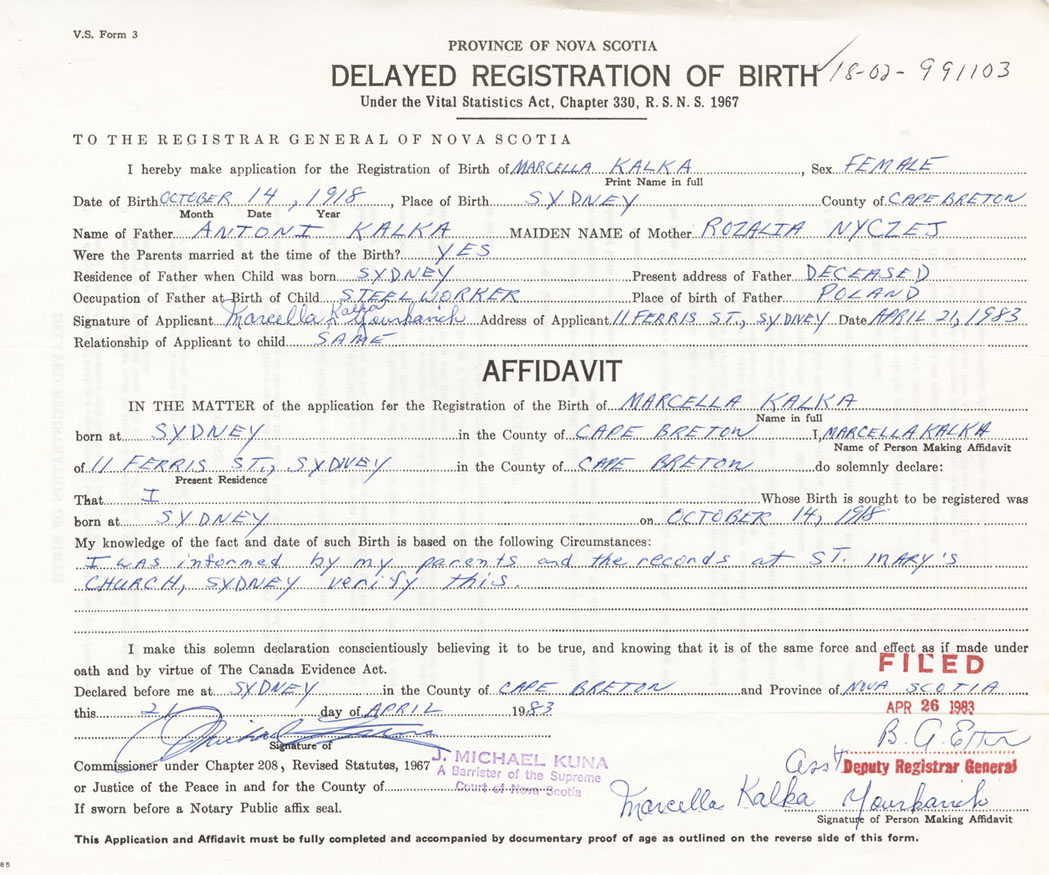 V.S. Form 3
PROVINCE OF NOVA SCOTIA
DELAYED REGISTRATION OF BIRTH 18-02-991103
Under the Vital Statistics Act, Chapter 330, R.S.N.S. 1967
TO THE REGISTRAR GENERAL OF NOVA SCOTIA
I hereby make application for the Registration of Birth of MARCELLA KALKA, Sex FEMALE
Print Name in full
Date of Birth OCTOBER 14, 1918, Place of Birth SYDNEY County of CAPE BRETON
Month Date Year
Name of Father ANTONI KALKA MAIDEN NAME of Mother ROZALIA NYCZEJ
Were the Parents married at the time of the Birth? YES
Residence of Father when Child was born SYDNEY Present address of Father DECEASED
Occupation of Father at Birth of Child STEELWORKER Place of birth of Father POLAND
Signature of Applicant Marcella Kalka Yourkanich Address of Applicant 11 FERRIS ST., SYDNEY Date APRIL 21, 1983
Relationship of Applicant to child SAME
AFFIDAVIT
IN THE MATTER of the application for the Registration of the Birth of MARCELLA KALKA
Name in full
born at SYDNEY in the County of CAPE BRETON I, MARCELLA KALKA
Name of Person Making Affidavit
of 11 FERRIS ST., SYDNEY in the County of CAPE BRETON do solemnly declare:
Present Residence
That I Whose Birth is sought to be registered was
born at SYDNEY on OCTOBER 14, 1918
My knowledge of the fact and date of such Birth is based on the following Circumstances:
I was informed by my parents and the records at ST. MARY'S
CHURCH, SYDNEY verify this
I make this solemn declaration conscientiously believing it to be true, and knowing that it is of the same force and effect as if made under
oath and by virtue of The Canada Evidence Act.
FILED
Declared before me at SYDNEY in the County of CAPE BRETON and Province of NOVA SCOTIA
this 21 day of APRIL 1983
APR 26 1983
Signature of
Commissioner under Chapter 208, Revised Statutes, 1967
J. MICHAEL KUNA
A Barrister of the Supreme
Court of Nova Scotia
Ass't Deputy Registrar General
or Justice of the Peace in and for the County of
If sworn before a Notary Public affix seal.
Marcella Kalka Yourkanich
Signature of Person Making Affidavit
This Application and Affidavit must be fully completed and accompanied by documentary proof of age as outlined on the reverse side of this form.
85